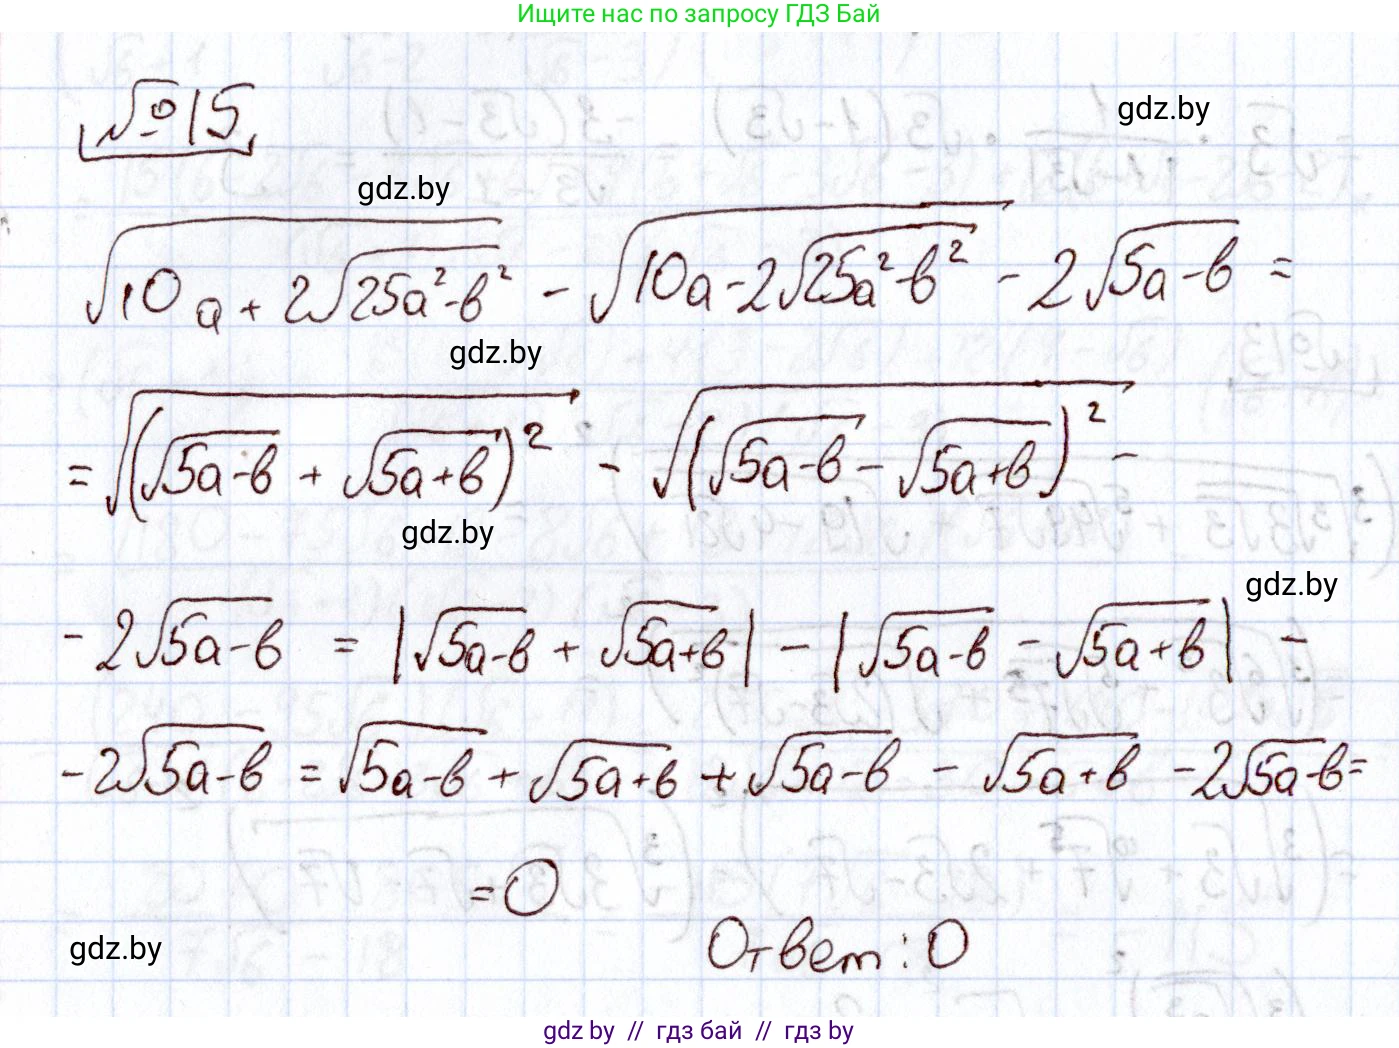 Ищите нас по запросу ГДЗ Бай
№15
gdz.by
gdz.by
√(10a + 2√(25a²-в²)) - √(10a - 2√(25a²-в²)) - 2√(5a-в) =
gdz.by
= √((√(5a-в) + √(5a+в))²) - √((√(5a-в) - √(5a+в))²) -
gdz.by
gdz.by
- 2√(5a-в) = |√(5a-в) + √(5a+в)| - |√(5a-в) - √(5a+в)| -
- 2√(5a-в) = √(5a-в) + √(5a+в) + √(5a-в) - √(5a+в) - 2√(5a-в) =
= 0
Ответ: 0
gdz.by
gdz.by // гдз бай // гдз by